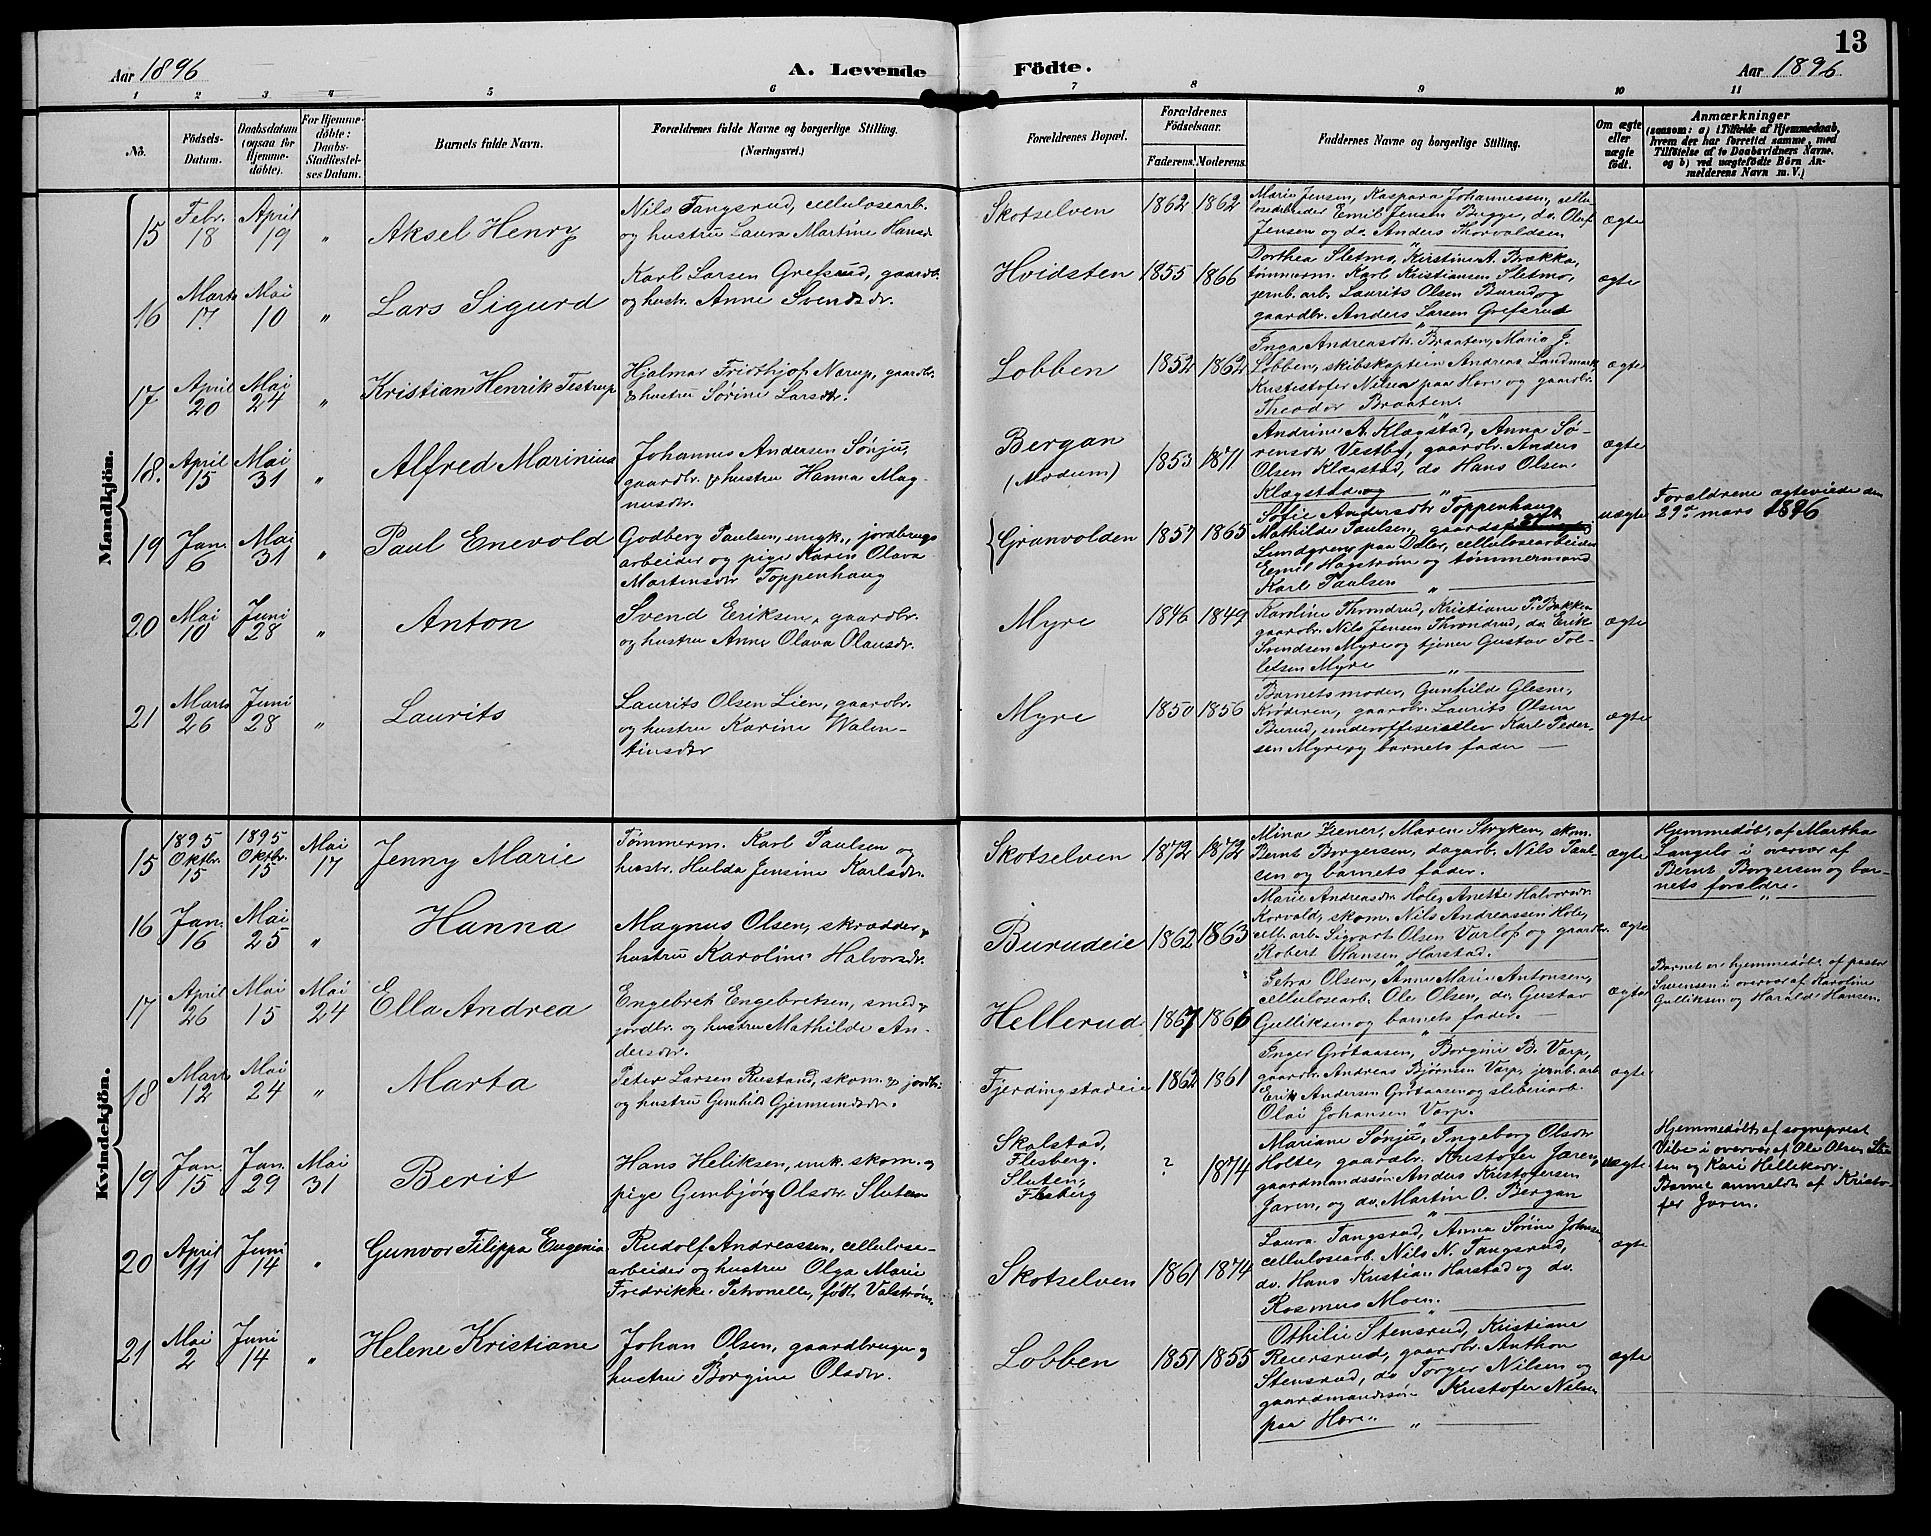 13
Aar 1896
A. Levende Födte.
Aar 1896
1 2 3 4 5 6 7 8 9 10 11
No.
Födsels-
Datum.
Daabsdatum
(ogsaa for
Hjemme-
döbte).
For Hjemme-
döbte:
Daabs-
Stadfæstel-
ses Datum.
Barnets fulde Navn.
Forældrenes fulde Navne og borgerlige Stilling.
(Næringsvei.)
Forældrenes Bopæl.
Forældrenes
Födselsaar.
Faderens. Moderens.
Faddernes Navne og borgerlige Stilling.
Om ægte
eller
uægte
födt.
Anmærkninger
(saasom: a) i Tilfælde af Hjemmedaab,
hvem der har forrettet samme, med
Tilföielse af to Daabsvidners Navne,
og b) ved uægtefödte Börn An-
melderens Navn m. V.)
Mandkjön.
15 Febr. 18 April 19 " Aksel Henry
Nils Tangsrud, cellulosearb.
og hustru Laura Martine Hansdr
Skotselven 1862 1862
Marie Jensen, Kaspara Johannessen, cellu-
losearbeider Emil Jensen Bugge, do. Oluf
Jensen og do. Anders Thorvaldsen
ægte
16 Marts 17. Mai 10 " Lars Sigurd
Karl Larsen Grefsrud, gaardbr.
og hustr. Anne Svendsdr.
Hvidsten 1855 1866
Dorthea Sletmo, Kirstine A. Brækka,
tømmerm. Karl Kristiansen Sletmo,
jernb. arb. Laurits Olsen Burud og
gaardbr. Anders Larsen Grefsrud
ægte
17 April 20 Mai 24 " Kristian Henrik Testrup
Hjalmar Fridthjof Nerup, gaardbr.
& hustru Sørine Larsdr.
Lobben 1852 1862
Inga Andreasdtr. Braaten, Maria J.
Lobben, skibskaptein Andreas Landmark
Kristofer Nilsen paa Hære og gaardbr.
Theodor Braaten.
ægte
18. April 15 Mai 31 " Alfred Marinius
Johannes Andersen Sønju,
gaardbr. & hustru Hanna Mag-
nusdr.
Bergan
(Modum)
1853 1871
Andrine A. Klægstad, Anna Sø-
rensdr Vestby, gaardbr. Anders
Olsen Klægstad, do Hans Olsen
Klægstad og
ægte
19 Jan. 6 Mai 31 " Paul Enevold
Godberg Paulsen, ungk., jordbrugs
arbeider og pige Karen Olava
Martinsdr Toppenhaug
Granvolden 1857 1865
Sofie Andersdtr Toppenhaug
Mathilde Paulsen, gaards
Lundgren paa Daler, cellulosearbeider
Emil Hagstrøm og tømmermand
Karl Paulsen
uægte
Forældrene ægteviede den
29de mars 1896
20 Mai 10 Juni 28 " Anton
Svend Eriksen, gaardbr.
og hustru Anne Olava Olausdr.
Myre 1846 1849
Karoline Throndrud, Kristiane P. Bakken
gaardbr. Nils Jensen Throndrud, do Erik
Svendsen Myre og tjener Gustav Tol-
lefsen Myre
ægte
21 Marts 26 Juni 28 " Laurits
Laurits Olsen Lien, gaardbr.
og hustru Karine Walen-
tinsdtr
Myre 1850 1856
Barnets moder, Gunhild Glesne,
Krøderen, gaardbr. Laurits Olsen
Burud, underofficerselev Karl Peder-
sen Myre og barnets fader
ægte
Kvindekjön.
15 1895 Oktbr. 15 1895 Oktbr. 15 Mai 17 Jenny Marie
Tømmerm. Karl Paulsen og
hustr. Hulda Jensine Karlsdr.
Skotselven 1872 1872
Mina Ziener, Maren Stryken, skom.
Bernt Borgersen, dagarb. Nils Paul-
sen og barnets fader.
ægte
Hjemmedøb. af Martha
Langelo i overvær af
Bernt Borgersen og bar-
nets forældre.
16 Jan. 16 Mai 25 " Hanna
Magnus Olsen, skrædder &
hustru Karoline Halvorsdr.
Burudeie 1862 1863
Marie Andreasdr Hole, Anette Halvorsdr.
Korvald, skom. Nils Andreassen Hole,
cell. arb. Sigvart Olsen Varlo og gaardbr.
Robert Hansen Harstad.
ægte
17 April 26 Mai 15 Mai 24 Ella Andrea
Engebret Engebretsen, smed &
jordbr. og hustru Mathilde An-
dersdr.
Hellerud 1867 1866
Petra Olsen, Anne Marie Antonsen,
cellulosearb. Ole Olsen, do. Gustav
Gulliksen og barnets fader.
ægte
Barnet er hjemmedøbt af pastor
Svensen i overvær af Karoline
Gulliksen og Harald Hansen
18 Marts 12 Mai 24 " Marta
Peter Larsen Rustand, skom. & jordbr.
og hustru Gunhild Gjermundsdr.
Fjerdingstadeie 1862 1861
Inger Grøtaasen, Borgine B. Varp,
gaardbr. Andreas Bjørnsen Varp, jernb. arb
Erik Andersen Grøtaasen og sliberiarb.
Olai Johansen Varp.
ægte
19 Jan. 15 Jan. 29 Mai 31 Berit
Hans Heliksen, unk. skom. og
pige Gunbjørg Olsdr. Sluten
Skalstad,
Flesberg.
Sluten,
Flesberg
? 1874
Mariane Sønju, Ingeborg Olsdr
Holte, gaardbr. Kristofer Jaren,
gaardmandssøn Anders Kristofersen
Jaren, og do. Martin O. Bergan
uægte
Hjemmedøbt af sogneprest
Vibe i overvær af Ole Olsen Slu-
ten og Kari Helliksdr.
Barnet anmeldt af Kristo-
fer Jaren.
20 April 11 Juni 14 " Gunvor Filippa Eugenia
Rudolf Andreassen, cellulose-
arbeider og hustru Olga Marie
Fredrikke Petronelle, født Valstrøm.
Skotselven 1861 1874
Laura Tangsrud, Anna Sørine Johnsen
cellulosearb. Nils N. Tangsrud,
do. Hans Kristian Harstad og do.
Rasmus Moen.
ægte
21 Mai 2 Juni 14 " Helene Kristiane
Johan Olsen, gaardbruger og
hustru Borgine Olsdr.
Lobben 1851 1855
Othilie Stensrud, Kristiane
Reiersrud, gaardbr. Anthon
Stensrud, do Torger Nilsen og
gaardmandssøn Kristofer Nilsen
paa Hære.
ægte